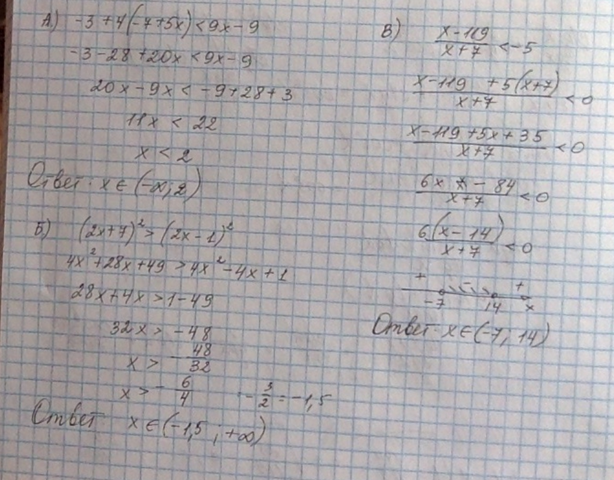 А) -3+4(-7+5x)<9x-9
-3-28+20x<9x-9
20x-9x<-9+28+3
11x < 22
x < 2
Ответ. x∈(-∞;2)
Б) (2x+7)²>(2x-1)²
4x²+28x+49>4x²-4x+1
28x+4x>1-49
32x > -48
x > -48/32
x > -6/4 -3/2=-1,5
Ответ x∈(-1,5; +∞)
В) (x-119)/(x+7)<-5
(x-119 +5(x+7))/(x+7)<0
(x-119+5x+35)/(x+7)<0
(6x - 84)/(x+7)<0
6(x-14)/(x+7)<0
+ - +
-7 14 x
Ответ. x∈(-7; 14)